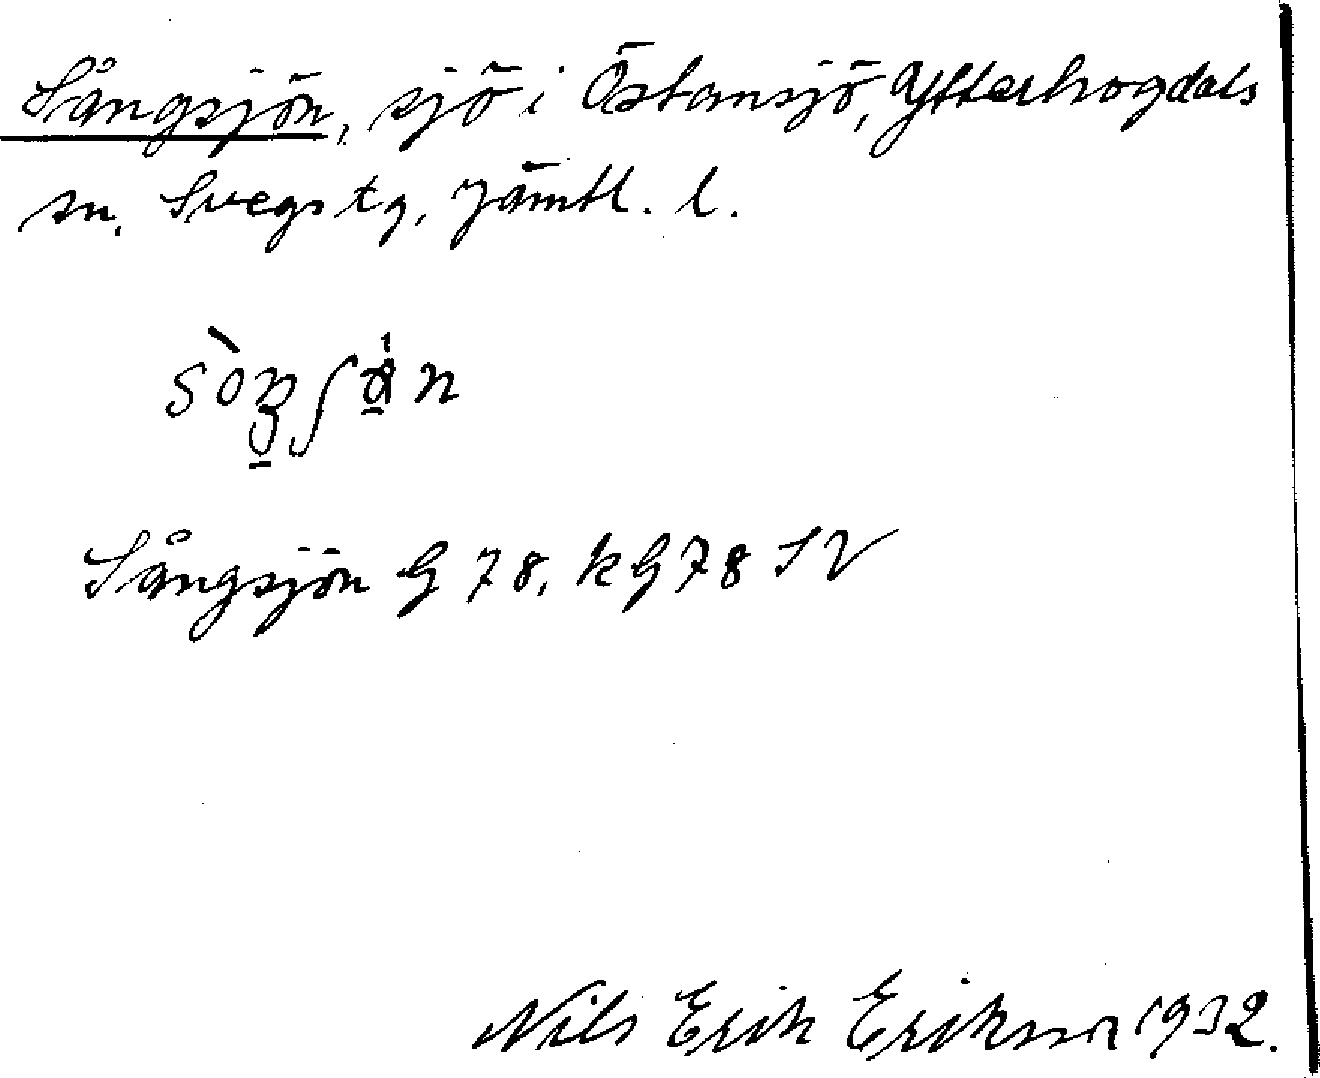 Sångsjön, sjö i Östansjö, Ytterhogdals
sn. Svegs tg, Jämtl. l.
Sångsjön G 78. k G 78 SV
Nils Erik Eriksson 1932.